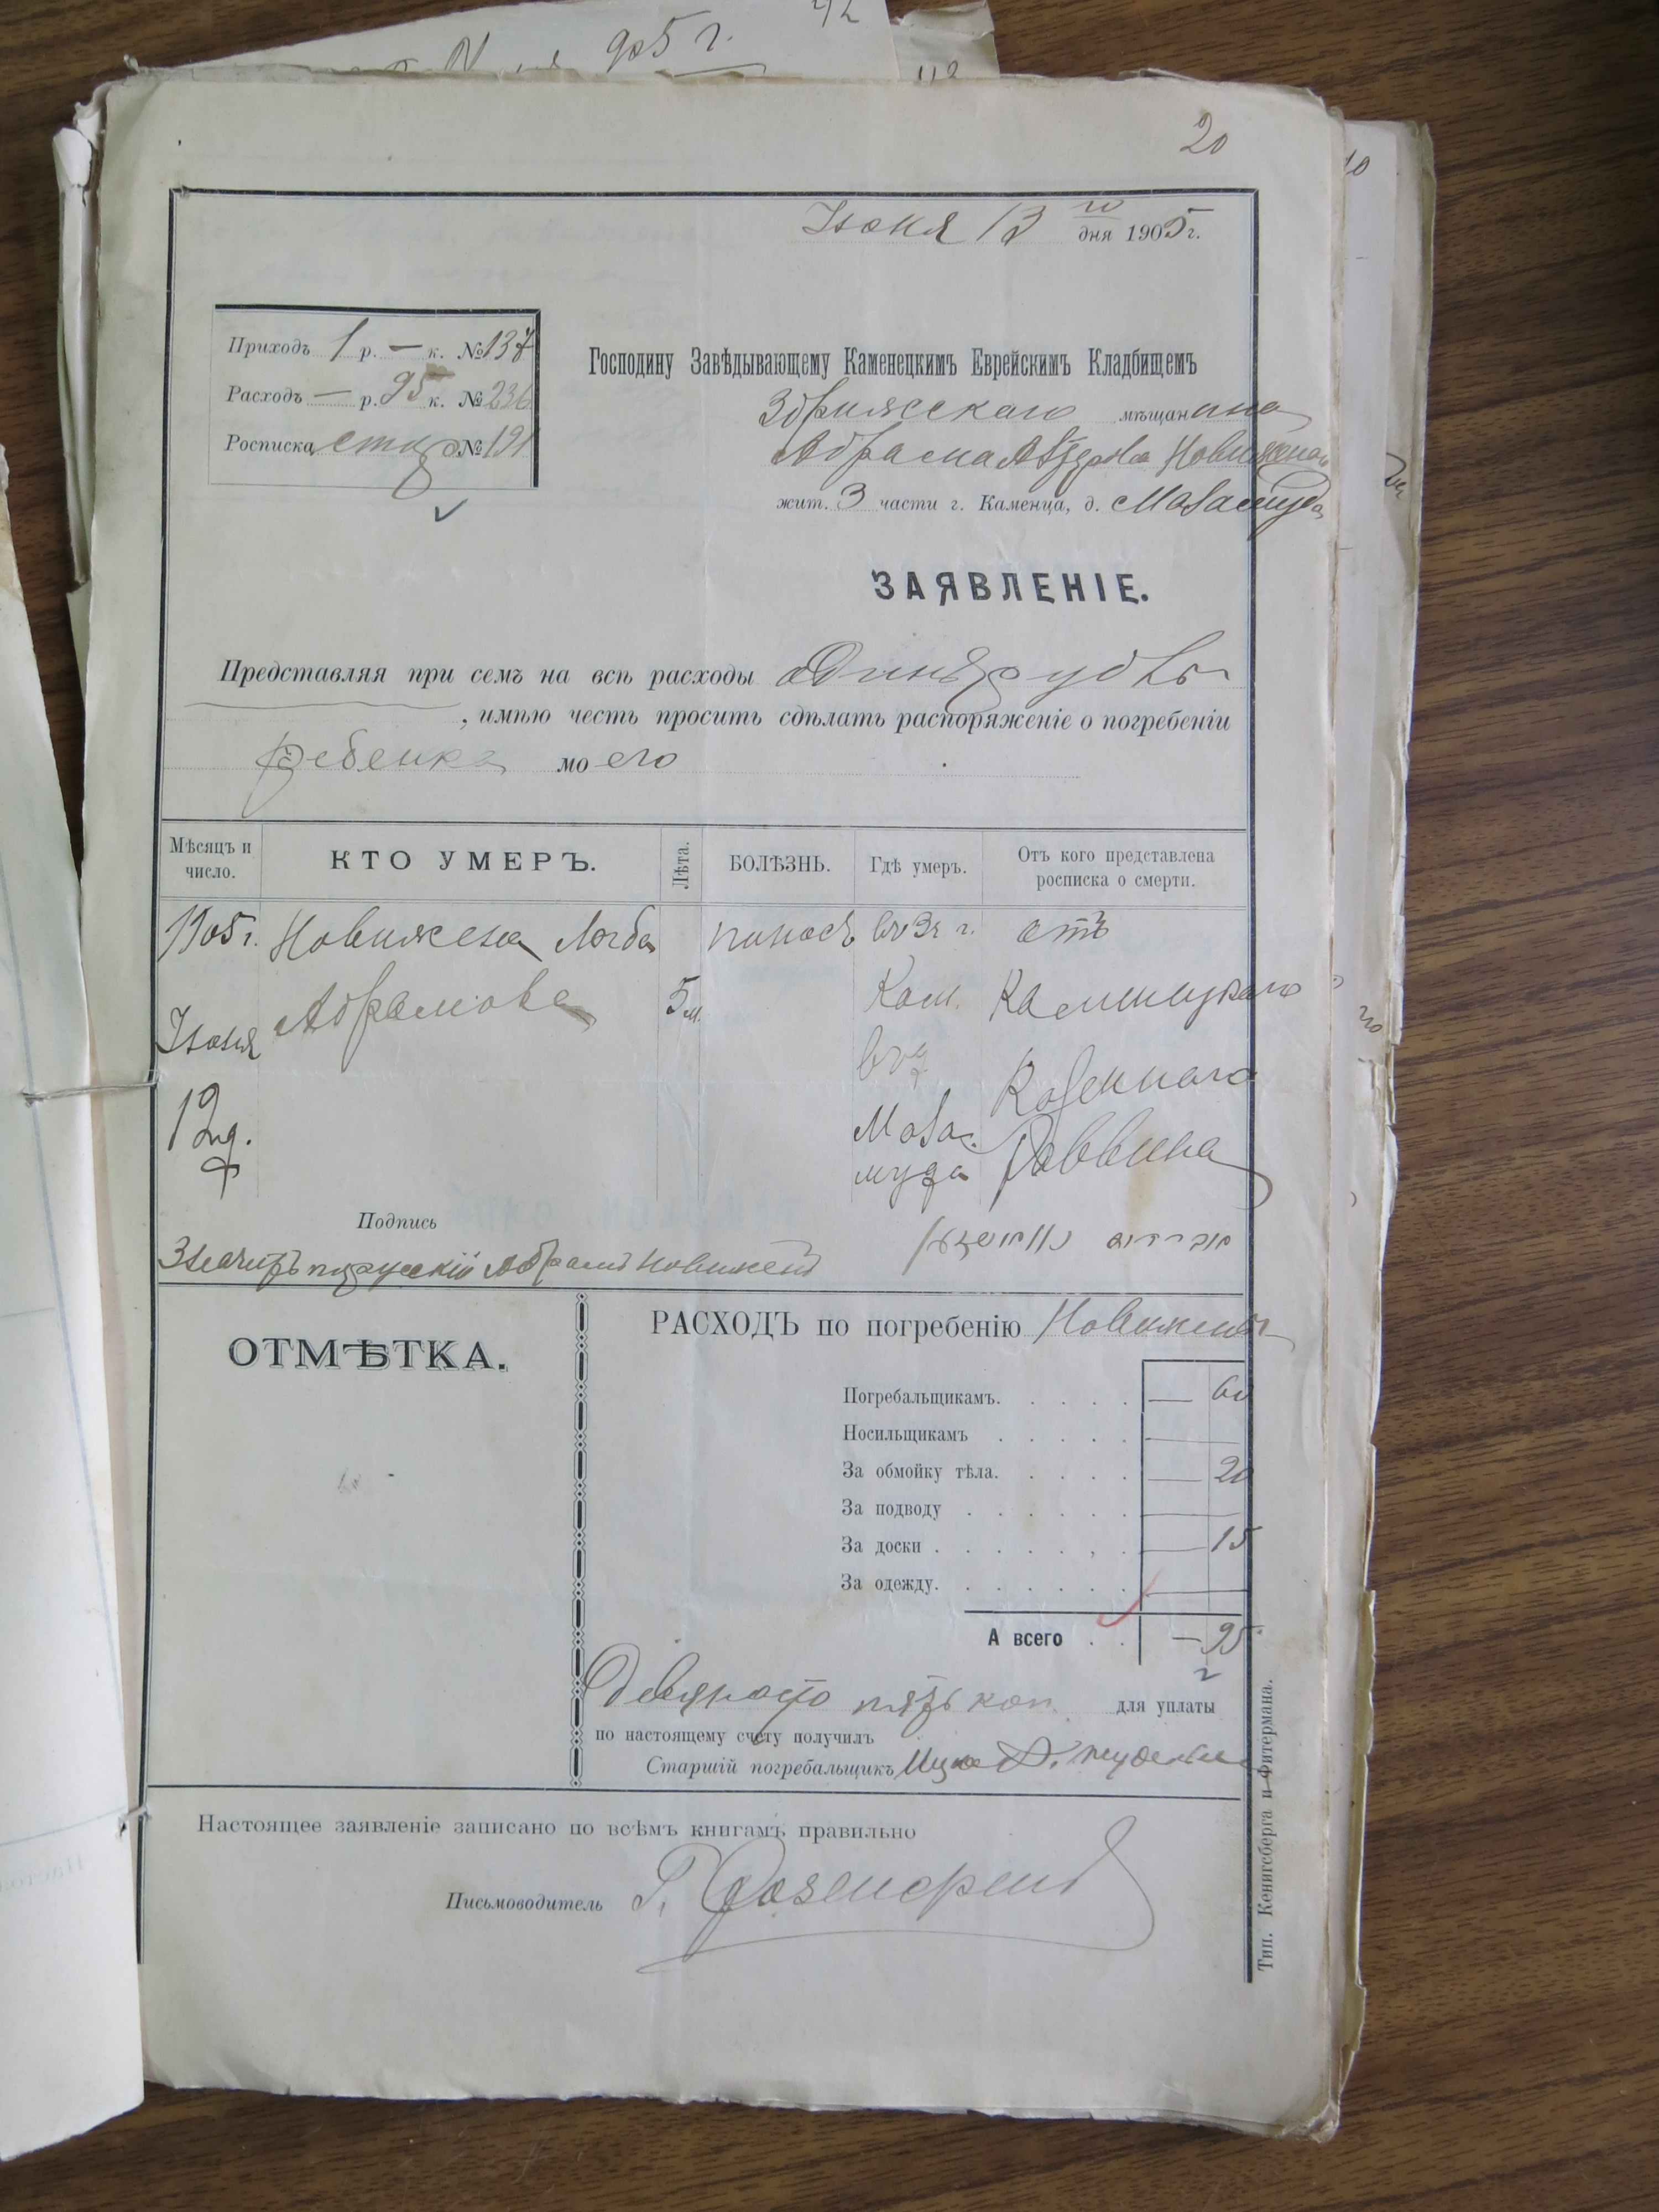 905 г.
20
Іюня 13 го дня 1905 г.
Приходъ 1 р. — к. № 137
Расходъ — р. 95 к. № 236
Росписка № 191
Господину Завѣдывающему Каменецкимъ Еврейскимъ Кладбищемъ
мѣщанина
Абрама Новижена
жит. 3 части г. Каменца, д.
ЗАЯВЛЕНІЕ.
Представляя при семъ на всѣ расходы одинъ рубль
, имѣю честь просить сдѣлать распоряженіе о погребеніи
ребенка моего
Мѣсяцъ и число.
КТО УМЕРЪ.
Лѣта.
БОЛѢЗНЬ.
Гдѣ умеръ.
Отъ кого представлена росписка о смерти.
1905 г. Новижена поносъ въ 3 ч. г. отъ
Іюня Абрамова 5 м. Кам. Каменецкаго
12 д. въ д. Казеннаго
Раввина
Подпись
Значитъ по русскій Абрамъ Новиженъ
ОТМѢТКА.
РАСХОДЪ по погребенію Новижены
Погребальщикамъ. — 60
Носильщикамъ —
За обмойку тѣла. — 20
За подводу —
За доски — 15
За одежду. —
А всего — 95
Девяносто пять коп. для уплаты
по настоящему счету получилъ
Старшій погребальщикъ
Настоящее заявленіе записано по всѣмъ книгамъ правильно
Письмоводитель Г.
Тип. Кенигсберга и Фитермана.